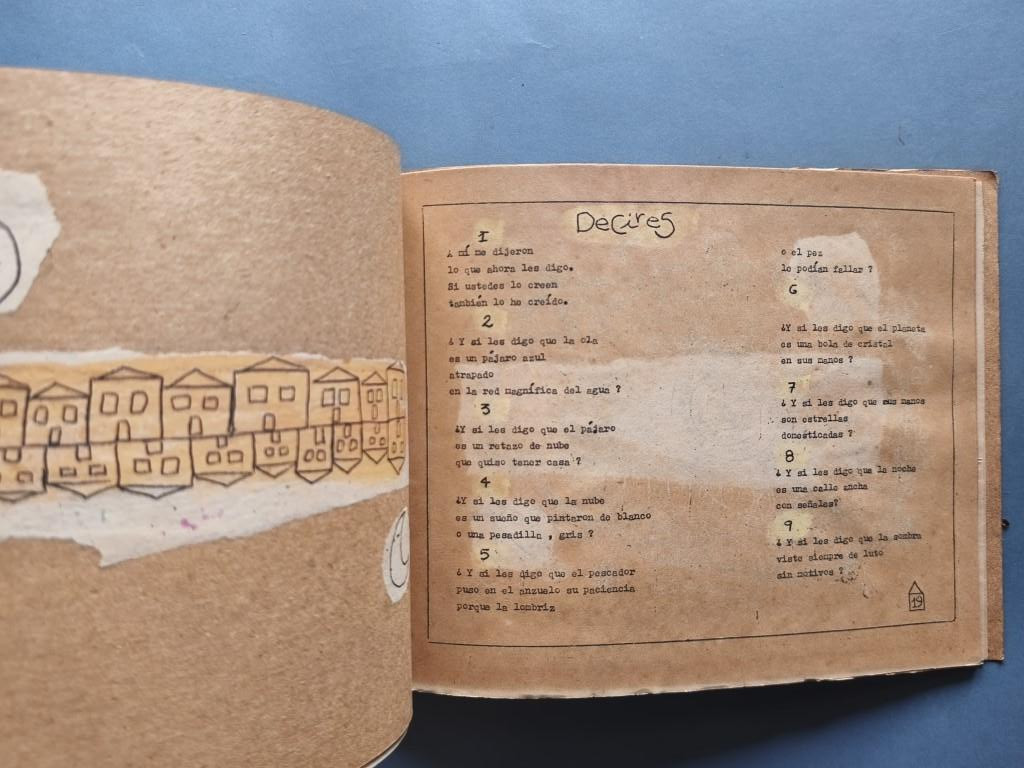 Decires
1
A mí me dijeron
lo que ahora les digo.
Si ustedes lo creen
también lo he creído.
2
¿Y si les digo que la ola
es un pájaro azul
atrapado
en la red magnífica del agua ?
3
¿Y si les digo que el pájaro
es un retazo de nube
que quiso tener casa ?
4
¿Y si les digo que la nube
es un sueño que pintaron de blanco
o una pesadilla , gris ?
5
¿Y si les digo que el pescador
puso en el anzuelo su paciencia
porque la lombriz
o el pez
le podían fallar ?
6
¿Y si les digo que el planeta
es una bola de cristal
en sus manos ?
7
¿Y si les digo que sus manos
son estrellas
domesticadas ?
8
¿Y si les digo que la noche
es una calle ancha
con señales?
9
¿Y si les digo que la sombra
viste siempre de luto
sin motivos ?
19